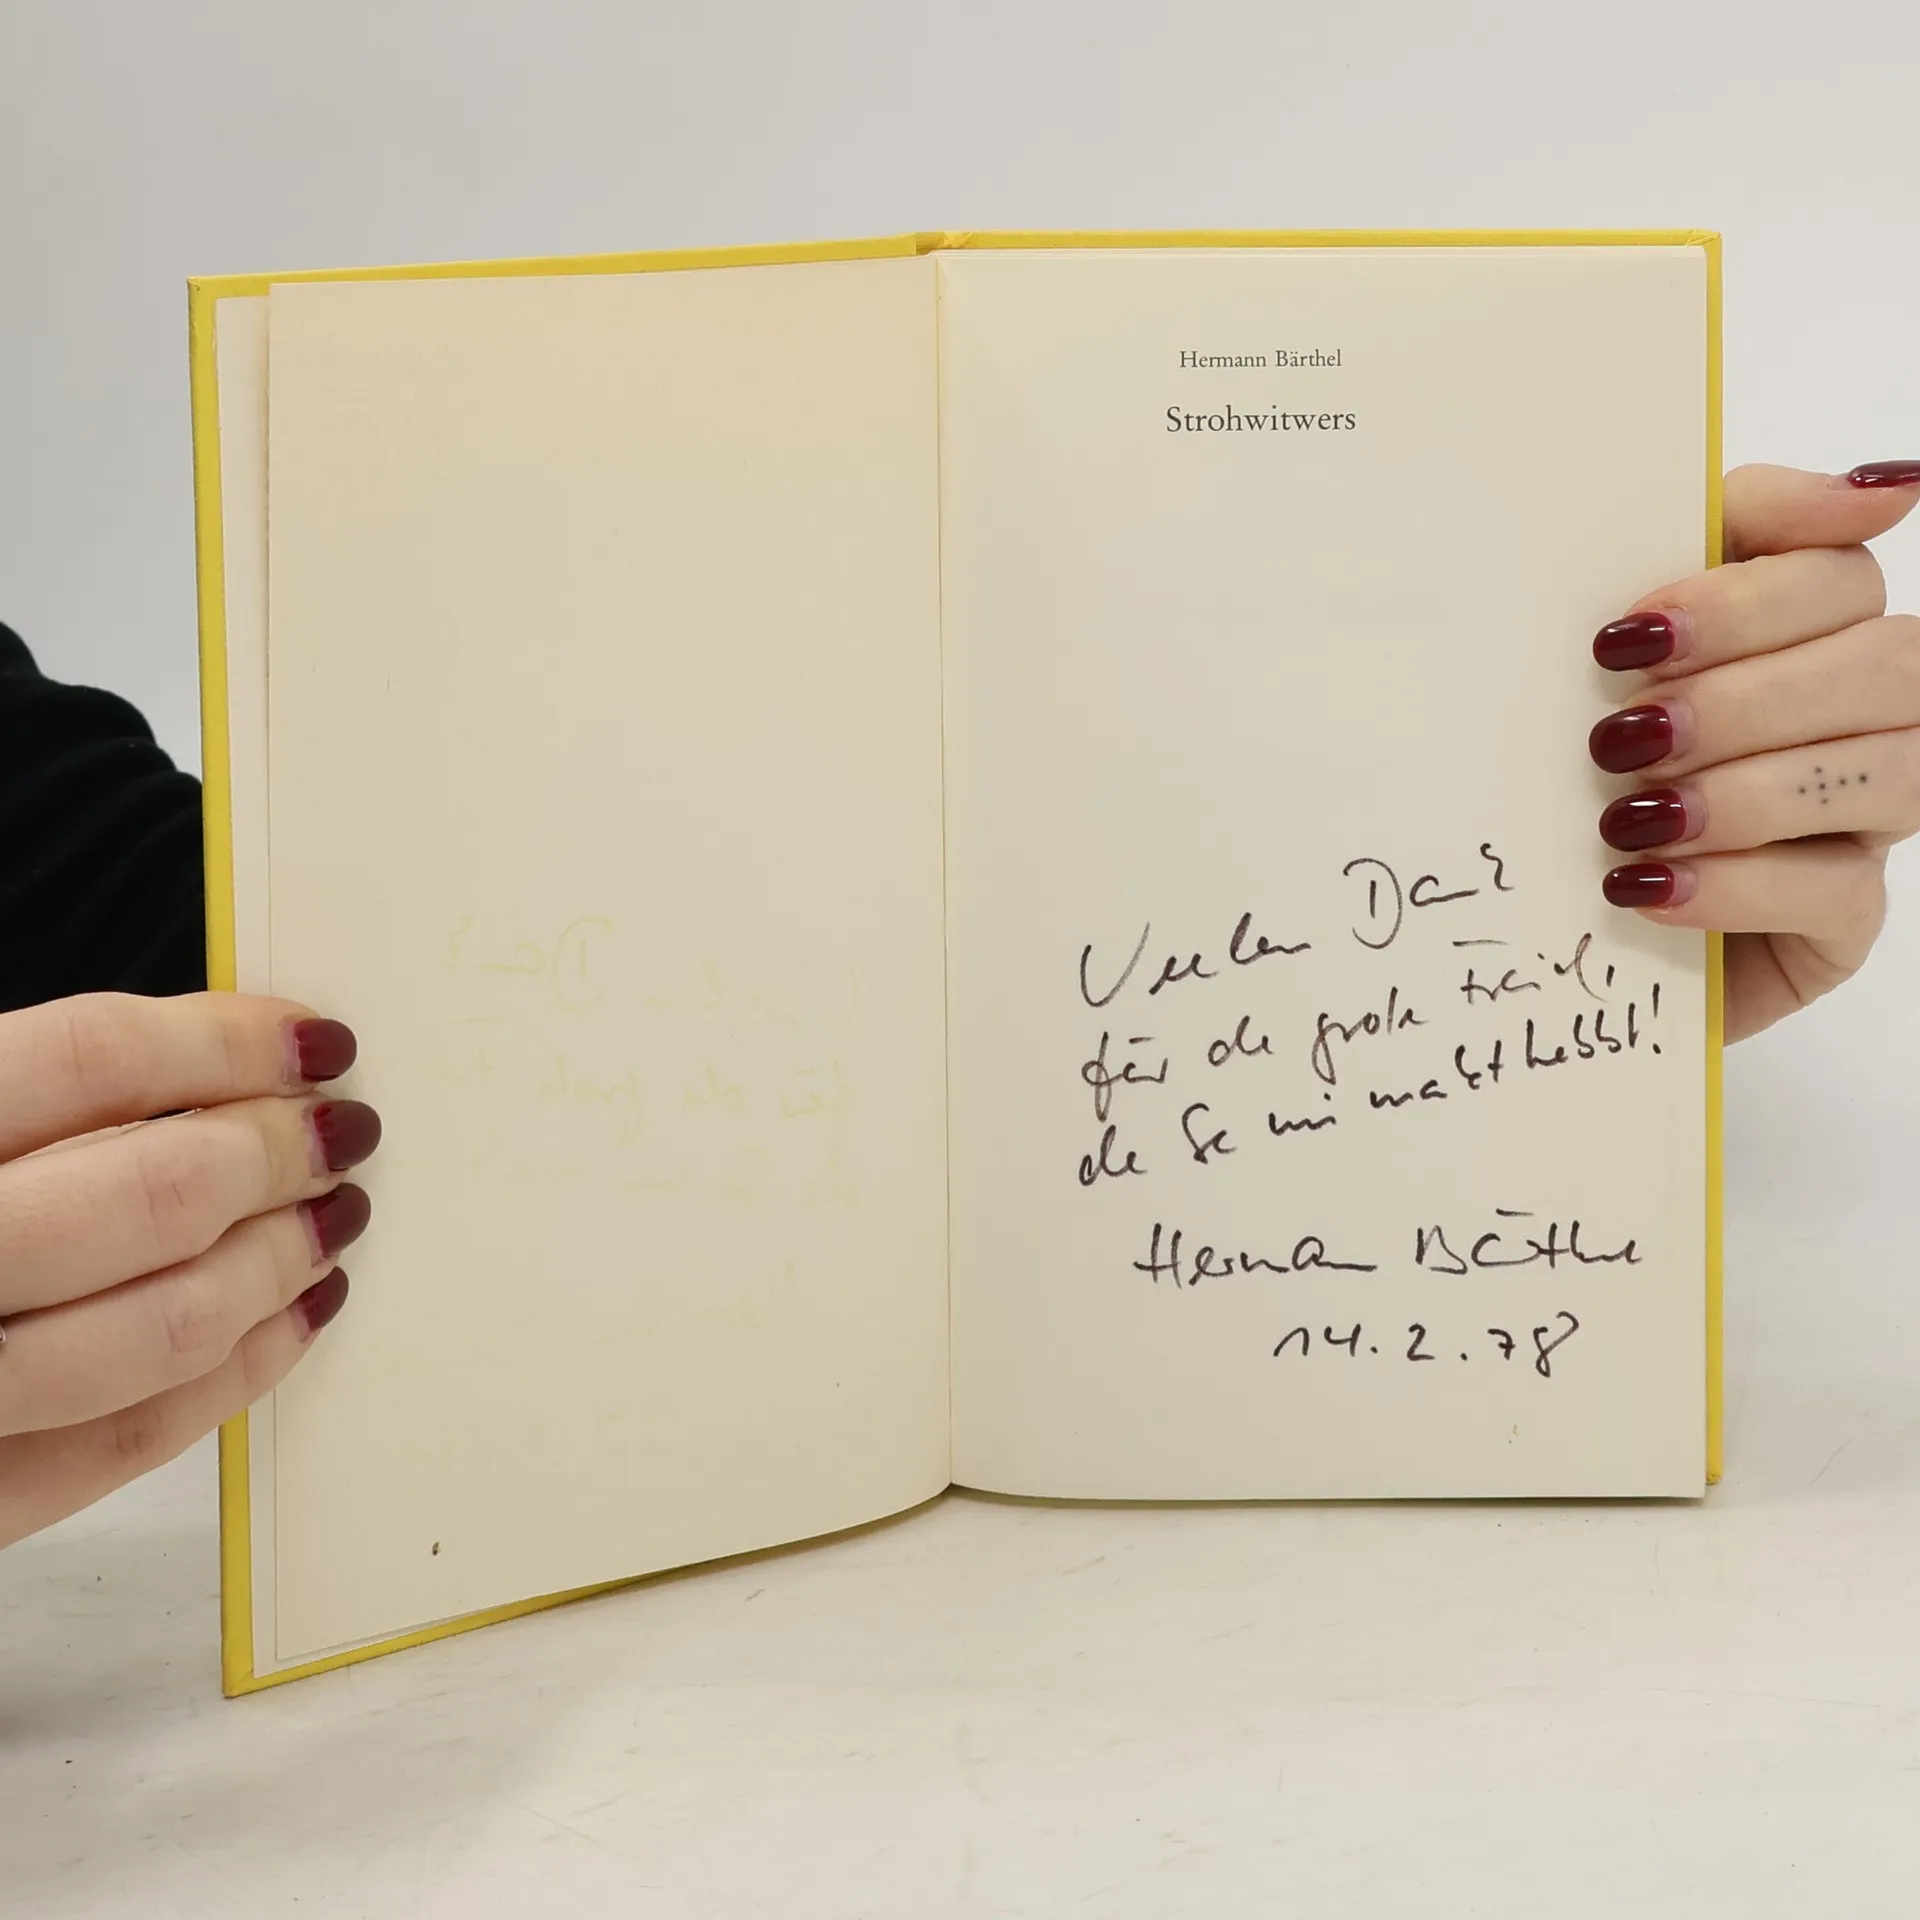 Hermann Bärthel
Strohwitwers
Veelen Dank
för de grote Freid,
de Se mi makt hebbt!
Hermann Bärthel
14.2.78